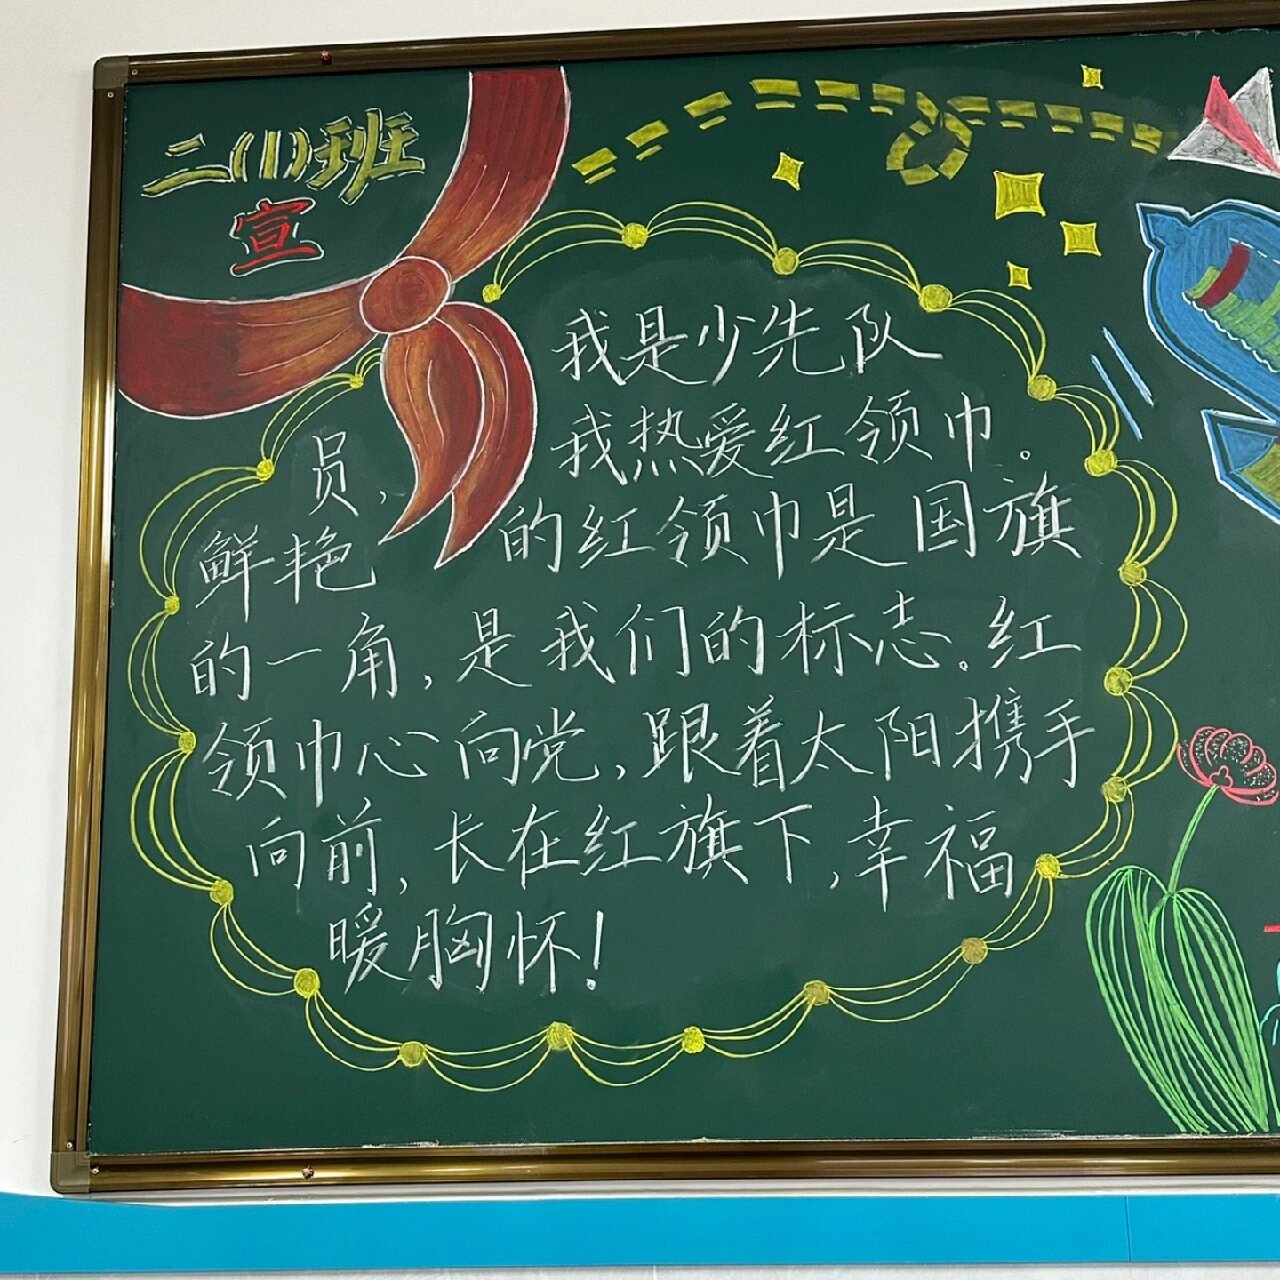 二(1)班
宣
我是少先队
员，我热爱红领巾。
鲜艳的红领巾是国旗
的一角，是我们的标志。红
领巾心向党，跟着太阳携手
向前，长在红旗下，幸福
暖胸怀！